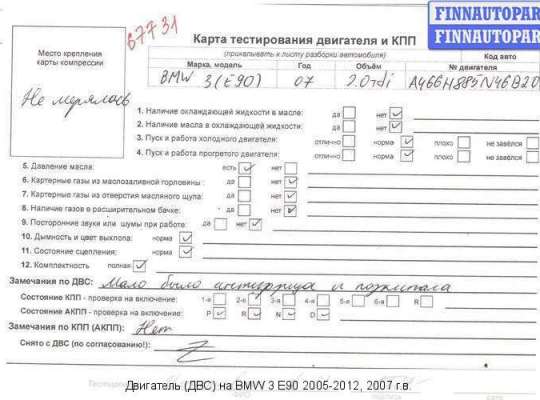 67731
FINNAUTOPAR
FINNAUTOPAR
Карта тестирования двигателя и КПП
(прикалывать к листу разборки автомобиля)
Код авто
Место крепления карты компрессии
Марка, модель Год Объём № двигателя
BMW 3 (E90) 07 2.0 tdi A466H885N46B20
Не мерялось
1. Наличие охлаждающей жидкости в масле: да нет
2. Наличие масла в охлаждающей жидкости: да нет
3. Пуск и работа холодного двигателя: отлично норма плохо не завёлся
4. Пуск и работа прогретого двигателя: отлично норма плохо не завёлся
5. Давление масла: есть нет
6. Картерные газы из маслозаливной горловины: да нет
7. Картерные газы из отверстия масляного щупа: да нет
8. Наличие газов в расширительном бачке: да нет
9. Посторонние звуки или шумы при работе: да нет
10. Дымность и цвет выхлопа: норма
11. Состояние сцепления: норма
12. Комплектность полная
Замечания по ДВС: Мало было антифриза и
Состояние КПП - проверка на включение: 1-я 2-я 3-я 4-я 5-я 6-я R
Состояние АКПП - проверка на включение: P R N D
Замечания по КПП (АКПП): Нет
Снято с ДВС (по согласованию!):
Двигатель (ДВС) на BMW 3 E90 2005-2012, 2007 г.в.